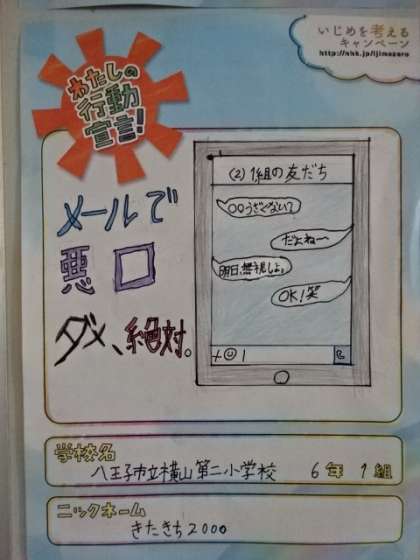 いじめを考える
キャンペーン
http://nhk.jp/ijimezero
わたしの
行動
宣言!
メールで
悪口
ダメ、絶対。
(2) 1組の友だち
〇〇うざくないて
だよねー
明日、無視しよ。
OK!笑
+☺ |
学校名
八王子市立横山第二小学校 6年 1組
ニックネーム
きたきち2000